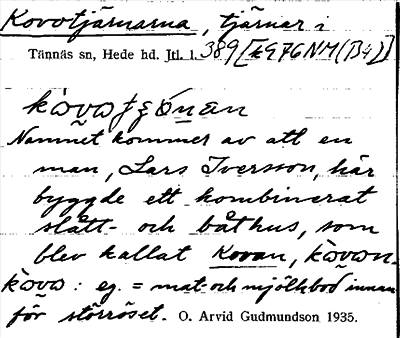 Kovotjärnarna, tjärnar i
Tännäs sn, Hede hd. Jtl. l. 389 [+976NM(B4)]
Namnet kommer av att en
man, Lars Iversson, här
byggde ett kombinerat
slått- och båthus, som
blev kallat Kovan,
: eg. = mat- och mjölkbod innan-
för störröset. O. Arvid Gudmundson 1935.